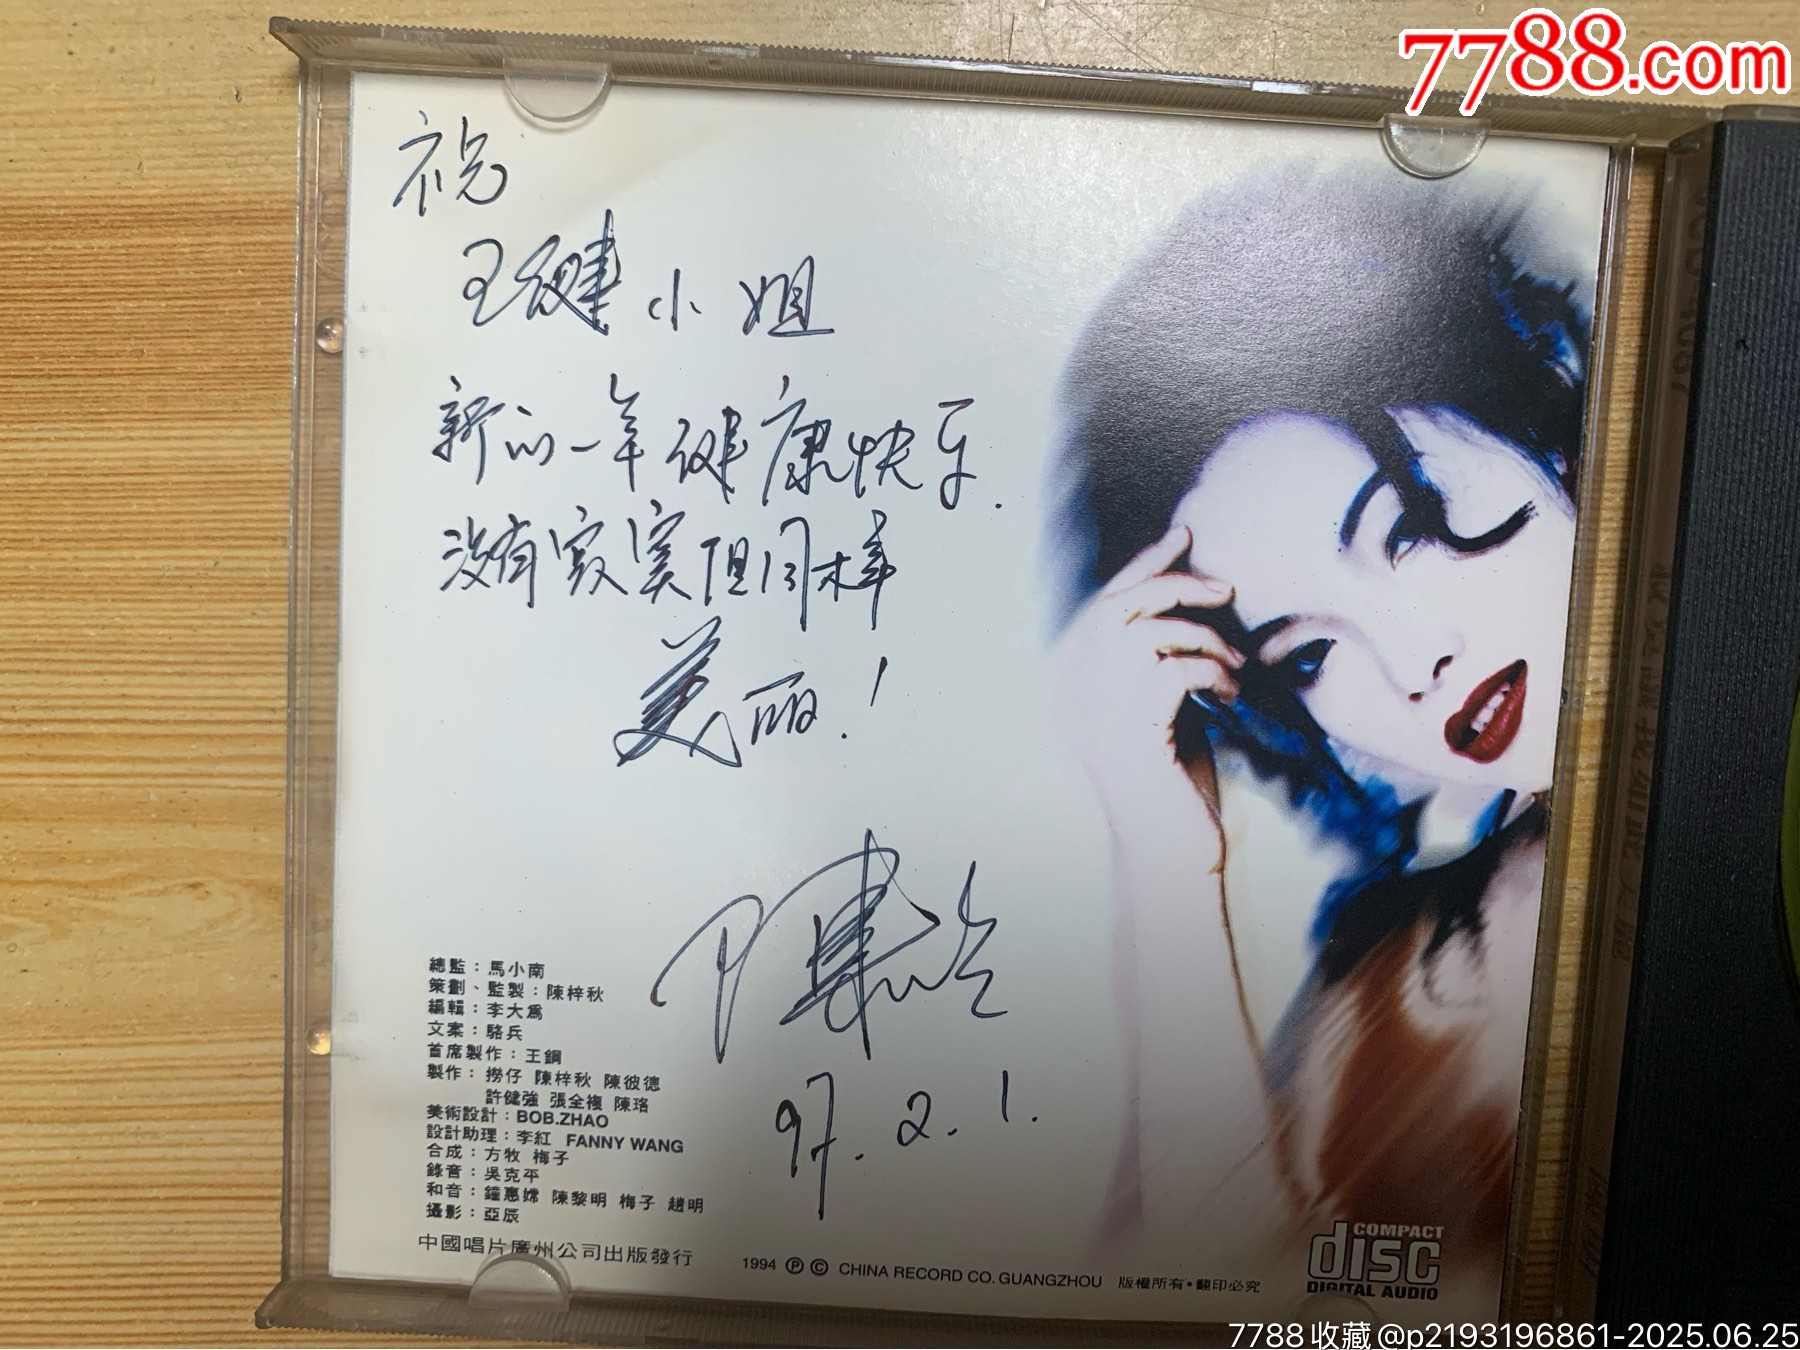 7788.com
祝
王健小姐
新的一年健康快乐.
没有寂寞但同样
美丽!
97.2.1.
總監：馬小南
策劃、監製：陳梓秋
編輯：李大爲
文案：駱兵
首席製作：王鋼
製作：撈仔 陳梓秋 陳彼德
許健強 張全複 陳珞
美術設計：BOB.ZHAO
設計助理：李紅 FANNY WANG
合成：方牧 梅子
錄音：吳克平
和音：鐘惠嫦 陳黎明 梅子 趙明
攝影：亞辰
中國唱片廣州公司出版發行
1994 Ⓟ © CHINA RECORD CO. GUANGZHOU 版權所有•翻印必究
COMPACT
disc
DIGITAL AUDIO
7788收藏@p2193196861-2025.06.25